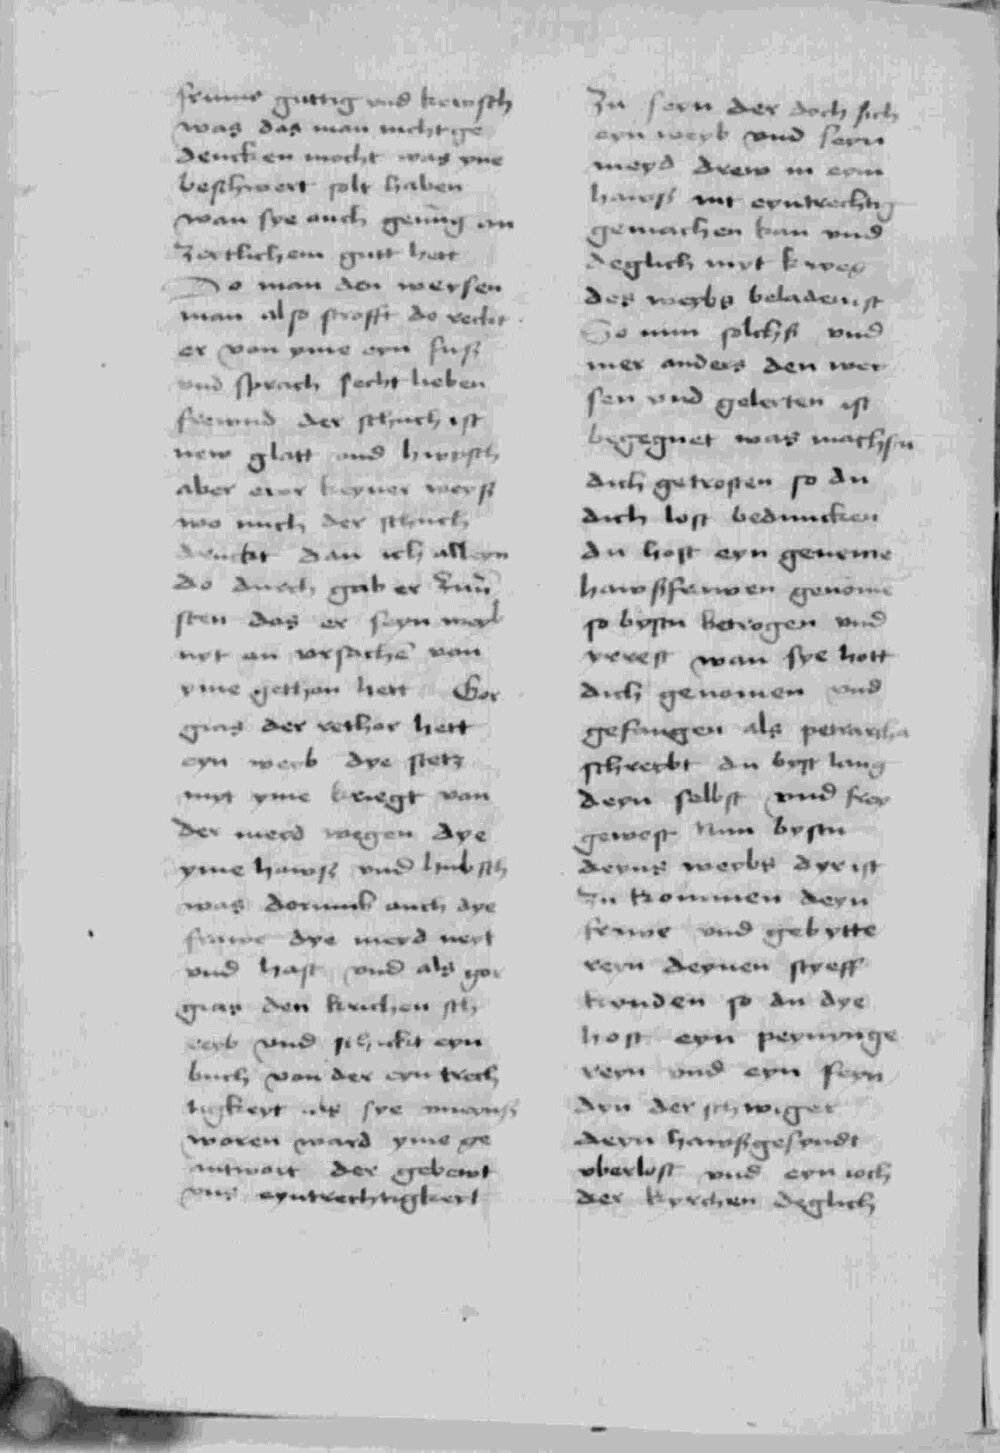 frume guttig vnd kewsch
was das man nicht ge
dencken mocht was yne
beschwert solt haben
wan sye auch genug an
zertlichem gutt hett
Do man den weysen
man also strafft do reckt
er von yme eyn fuß
vnd sprach secht lieben
frewnd der schuch ist
new glatt vnd hwpsch
aber ewr keyner weyß
wo mich der schuch
druckt dan ich alleyn
do durch gab er zuu
sten das er seyn weyb
nyt an vrsachē von
yme gethon hett Gor
gias der rethor hett
eyn weyb dye stetz
myt yme kriegt von
der meyd wegen dye
yme hawß vnd hubsch
was dorumb auch dye
frawe dye meyd neyt
vnd hast vnd als gor
gias den krichen sch
reyb vnd schickt eyn
buch von der eyntrech
tigkeyt als sye vneynß
woren ward yme ge
antwort der gebewt
vns eyntrechtigkeyt
Zu seyn der doch sich
eyn weyb vnd seyn
meyd drew in eym
hawß nit eyntrechtig
gemachen kan vnd
deglich myt kweg
des weybs beladen ist
So nun solchß vnd
mer anders den wey
sen vnd gelerten ist
begegnet was machstu
dich getrosten so du
dich lost beduncken
du host eyn geneme
hawßfrawen genōme
so bystu betrogen vnd
yrrest wan sye hott
dich genomen vnd
gefangen als petrarcha
schreybt du byst lang
deyn selbst vnd frey
gewest Nun bystu
deyns weybs dyr ist
zu kommen deyn
frawe vnd gebytte
reyn deynen styeff
kynden so du dye
host eyn peynynge
reyn vnd eyn feyn
dyn der schwiger
deyn hawßgesyndt
vberlost vnd eyn ioch
der kyrchen deglich